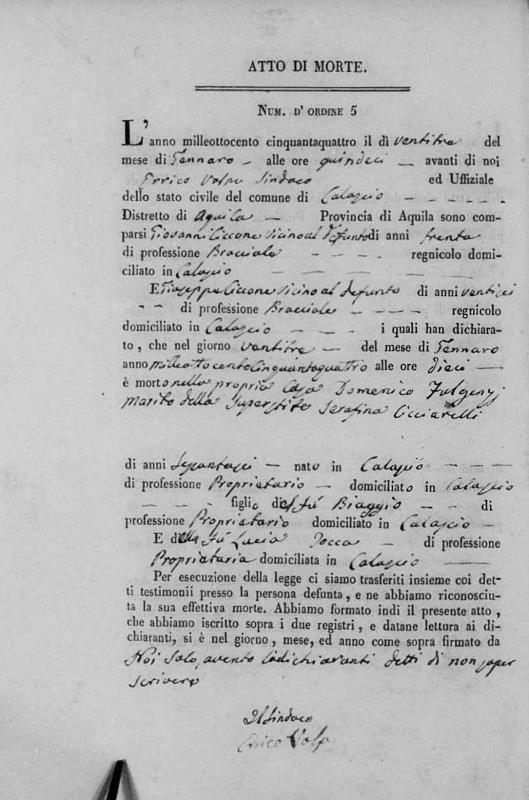 ATTO DI MORTE.
NUM. D' ORDINE 5
L'anno milleottocento cinquantaquattro il dì ventitre del
mese di Gennaro - alle ore quindeci - avanti di noi
Errico Volpe Sindaco ed Uffiziale
dello stato civile del comune di Calascio - - - - -
Distretto di Aquila - Provincia di Aquila sono com-
parsi Giovanni Ciccone Vicino al defunto di anni trenta
di professione Bracciale - - - - regnicolo domi-
ciliato in Calascio - - - - -
E Giuseppe Ciccone Vicino al defunto di anni ventisei
- - di professione Bracciale - - - - regnicolo
domiciliato in Calascio - - - - i quali han dichiara-
to, che nel giorno ventitre - del mese di Gennaro
anno milleottocentocinquantaquattro alle ore dieci -
è morto nella propria Casa Domenico Fulgenzj
marito della Superstite Serafina Cicciarelli
di anni Sessantasei - nato in Calascio - - -
di professione Proprietario - domiciliato in Calascio
- - - figlio del fù Biaggio - - di
professione Proprietario domiciliato in Calascio -
E della fù Lucia - di professione
Proprietaria domiciliata in Calascio -
Per esecuzione della legge ci siamo trasferiti insieme coi det-
ti testimonii presso la persona defunta, e ne abbiamo riconosciu-
ta la sua effettiva morte. Abbiamo formato indi il presente atto,
che abbiamo iscritto sopra i due registri, e datane lettura ai di-
chiaranti, si è nel giorno, mese, ed anno come sopra firmato da
Noi Solo, avento i dichiaranti detti di non saper
scrivere
Il Sindaco
Errico Volpe